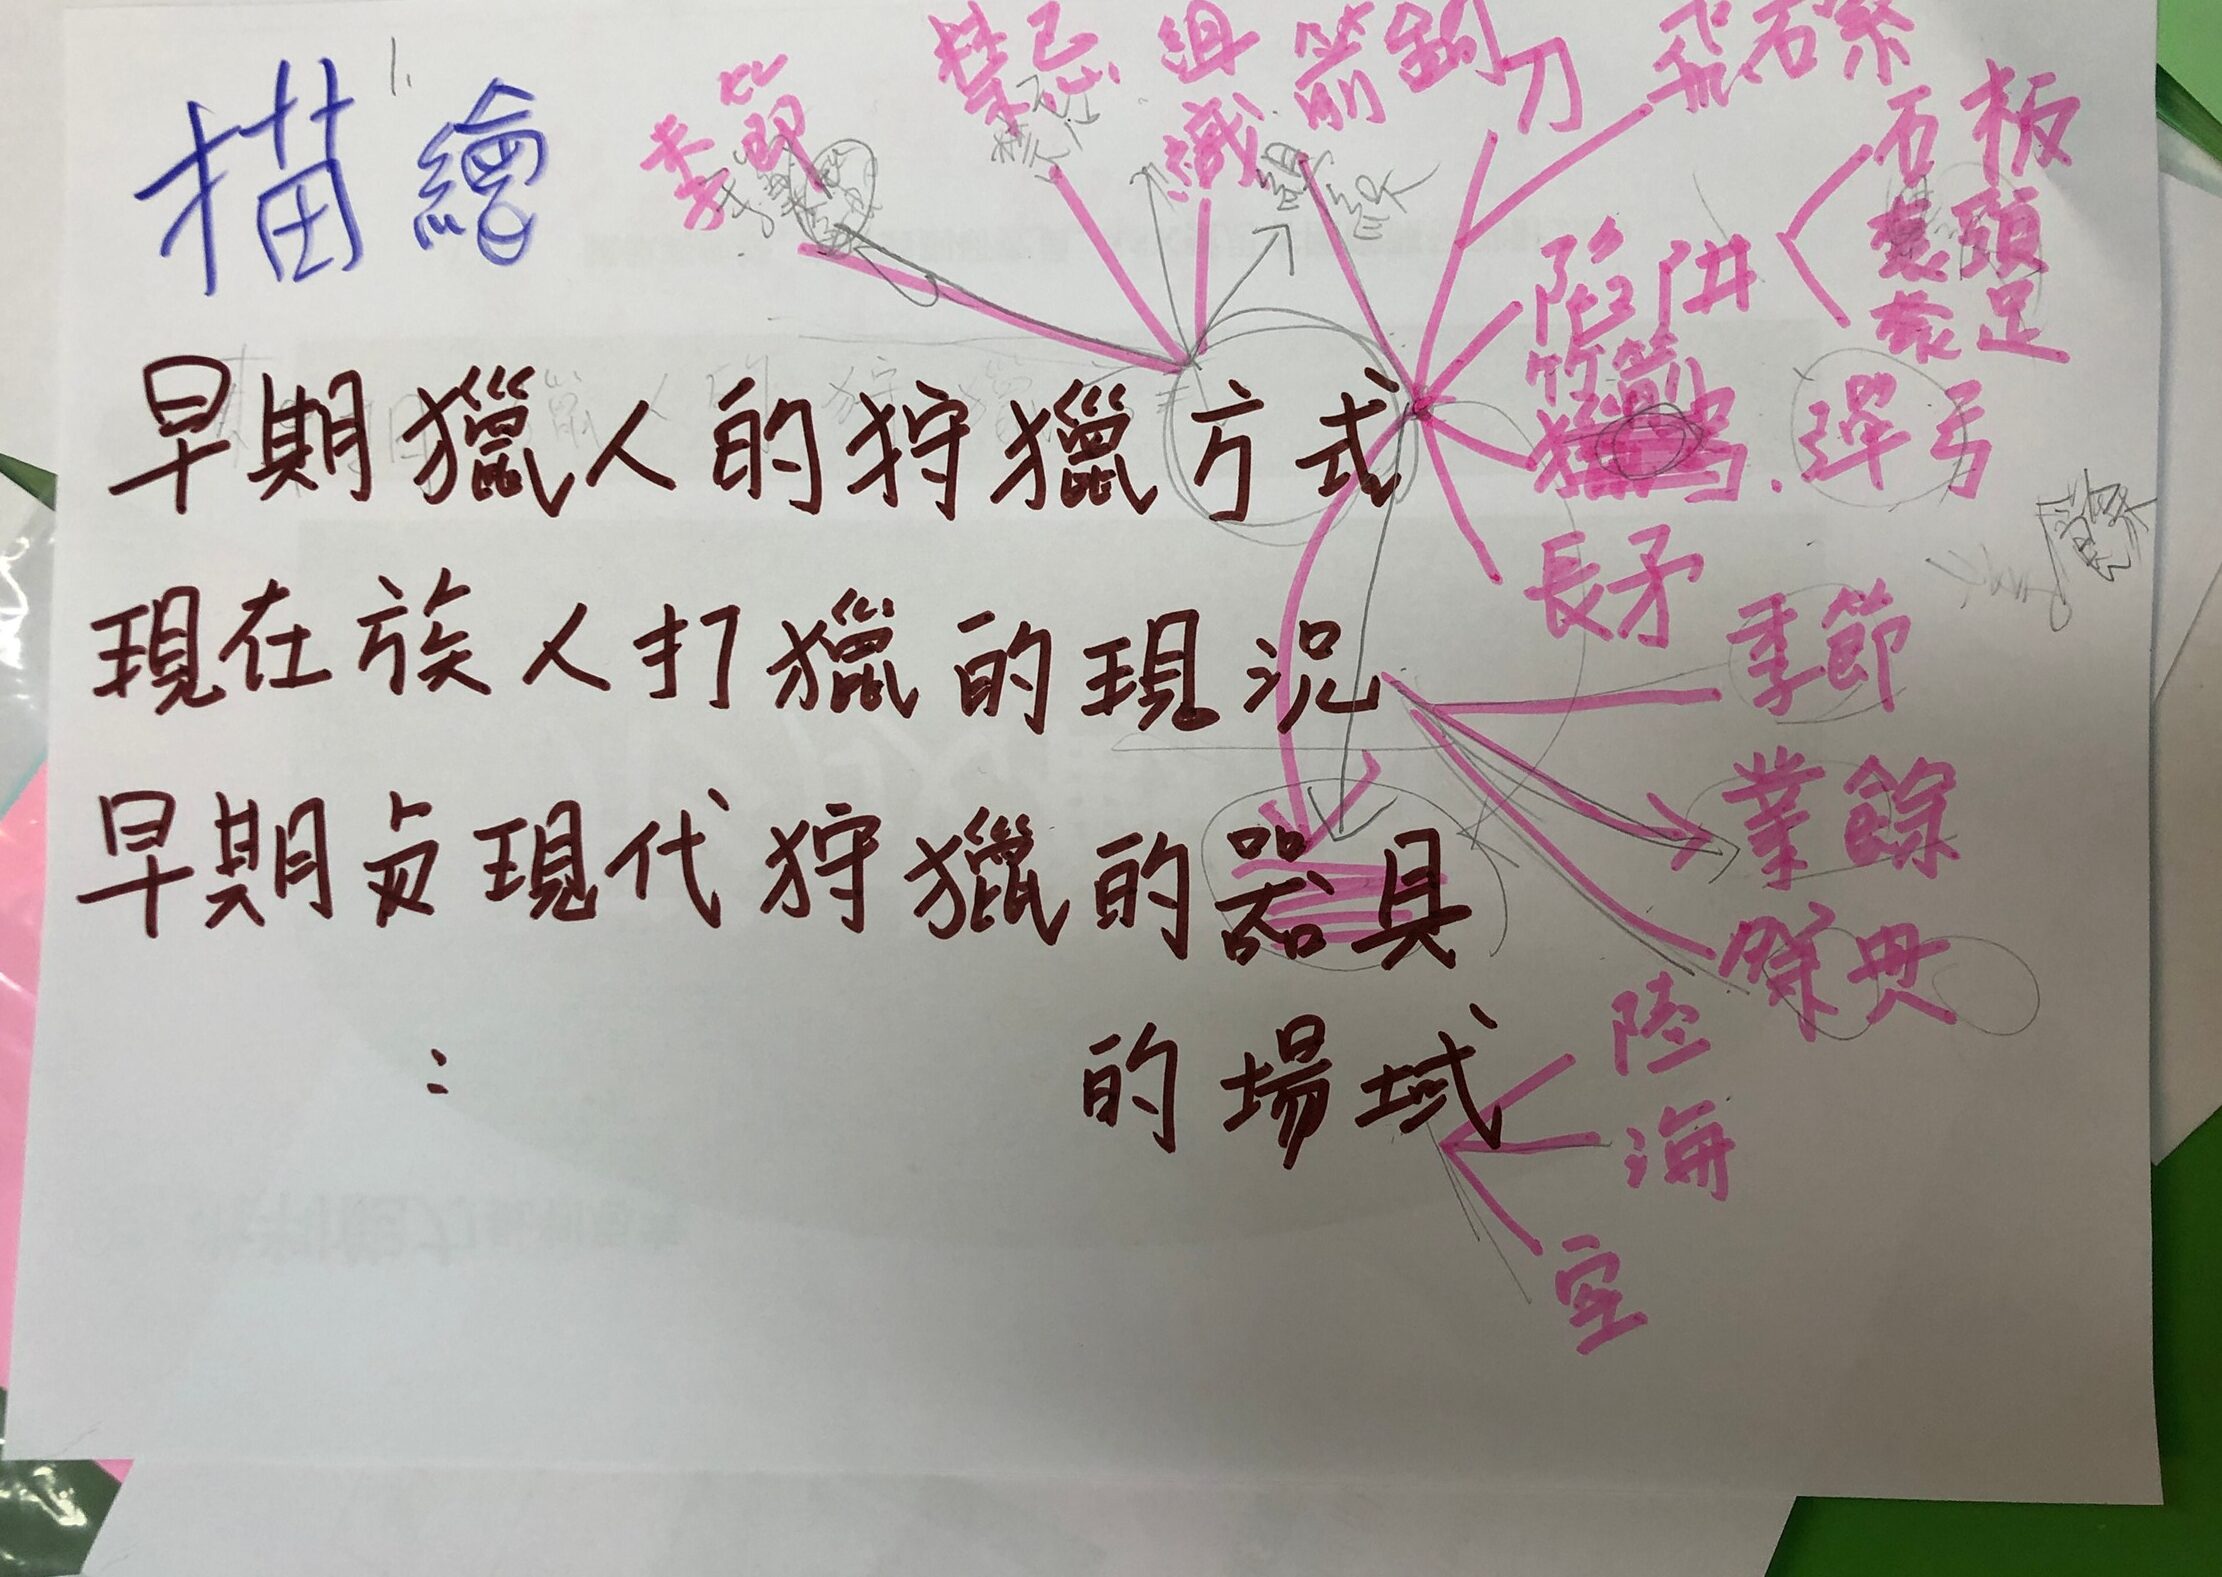 描繪
季節
禁忌
組織
箭
刀
飛石索
石板
套頭
套足
陷阱
竹箭
獵
彈弓
長矛
早期獵人的狩獵方式
現在族人打獵的現況
季節
業餘
祭典
早期與現代狩獵的器具
的場域
陸
海
空